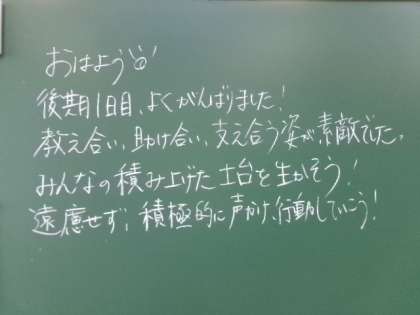 おはよう
後期1日目、よくがんばりました!
教え合い、助け合い、支え合う姿が素敵でした。
みんなの積み上げた土台を生かそう!
遠慮せず、積極的に声かけ、行動していこう!